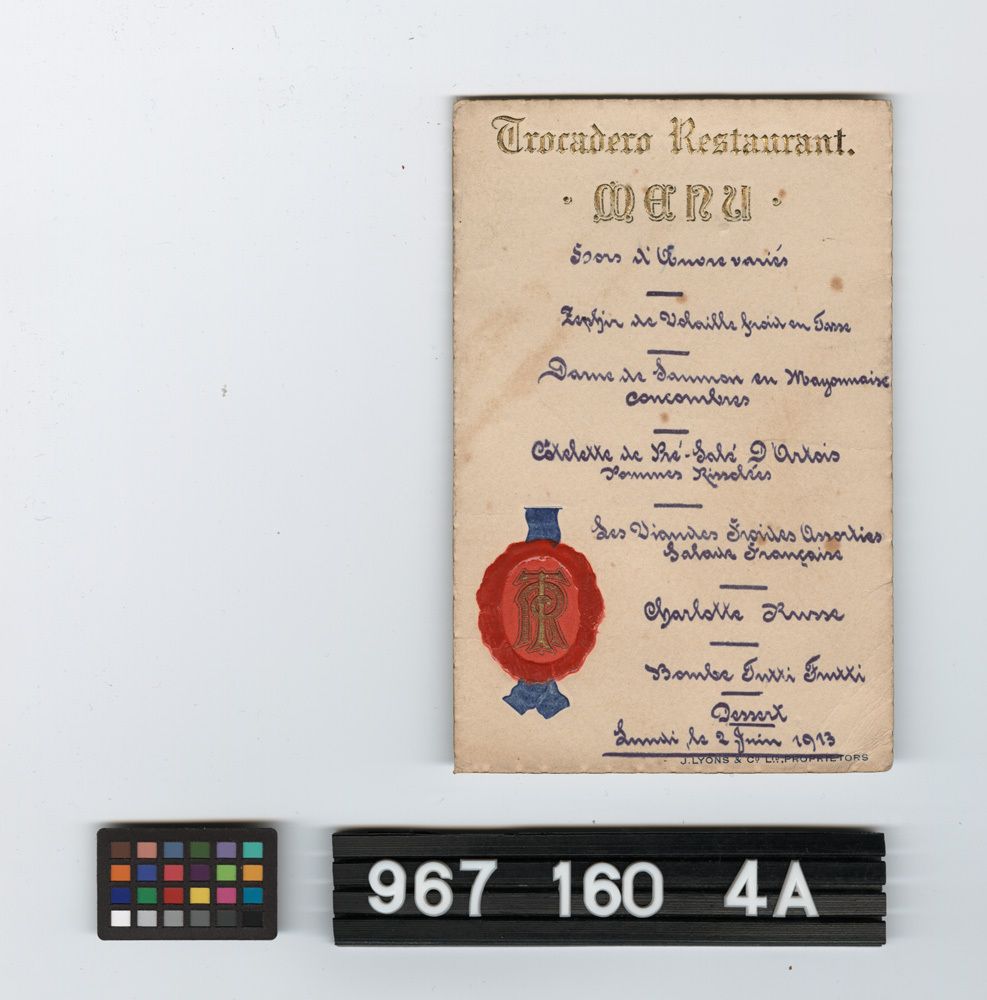 Trocadero Restaurant.
· MENU ·
Hors d'Œuvre variés
Zephir de Volaille froid en Tasse
Darne de Saumon en Mayonnaise
Concombres
Côtelette de Pré-Salé D'Artois
Pommes Rissolées
Les Viandes Froides Assorties
Salade Française
Charlotte Russe
Bombe Tutti Frutti
Dessert
Lundi, le 2 Juin 1913
J. LYONS & Co LTD, PROPRIETORS
TR
967 160 4A